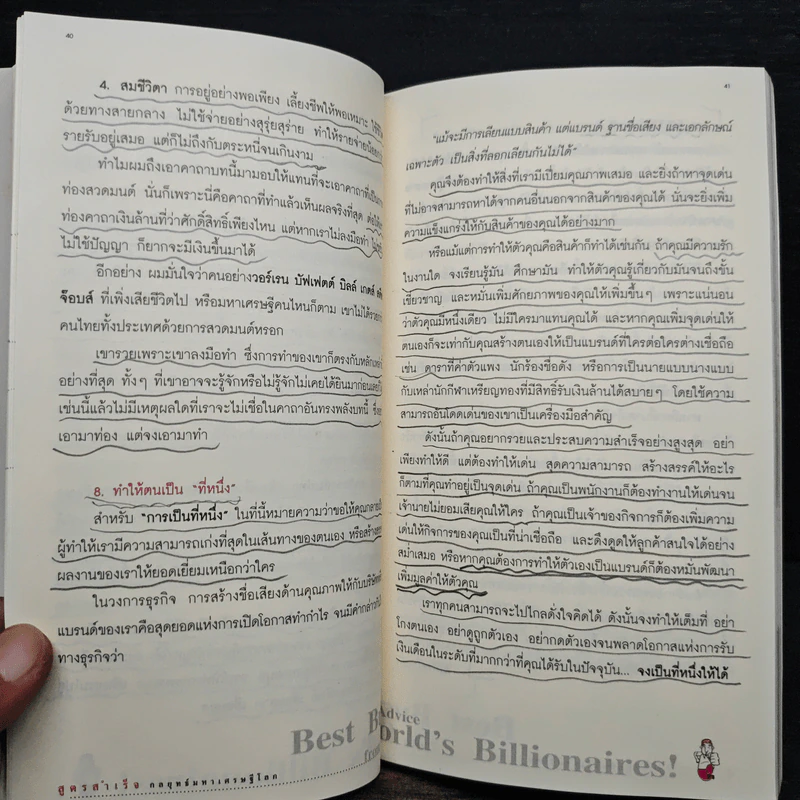 40
4. สมชีวิตา การอยู่อย่างพอเพียง เลี้ยงชีพให้พอเหมาะ
ด้วยทางสายกลาง ไม่ใช้จ่ายอย่างสุรุ่ยสุร่าย ทำให้รายจ่าย
รายรับอยู่เสมอ แต่ก็ไม่ถึงกับตระหนี่จนเกินงาม
ทำไมผมถึงเอาคาถาบทนี้มามอบให้แทนที่จะเอาคาถาที่เป็น
ท่องสวดมนต์ นั่นก็เพราะนี่คือคาถาที่ทำแล้วเห็นผลจริงที่สุด
ท่องคาถาเงินล้านที่ว่าศักดิ์สิทธิ์เพียงไหน แต่หากเราไม่ลงมือทำ
ไม่ใช้ปัญญา ก็ยากจะมีเงินขึ้นมาได้
อีกอย่าง ผมมั่นใจว่าคนอย่างวอร์เรน บัฟเฟตต์ บิลล์ เกตส์
จ๊อบส์ ที่เพิ่งเสียชีวิตไป หรือมหาเศรษฐีคนไหนก็ตาม เขาไม่ได้
คนไทยทั้งประเทศด้วยการสวดมนต์หรอก
เขารวยเพราะเขาลงมือทำ ซึ่งการทำของเขาก็ตรงกับหลัก
อย่างที่สุด ทั้งๆ ที่เขาอาจจะรู้จักหรือไม่รู้จักไม่เคยได้ยินมาก่อนเลย
เช่นนี้แล้วไม่มีเหตุผลใดที่เราจะไม่เชื่อในคาถาอันทรงพลังบทนี้
เอามาท่อง แต่จงเอามาทำ
8. ทำให้ตนเป็น "ที่หนึ่ง"
สำหรับ "การเป็นที่หนึ่ง" ในที่นี้หมายความว่าขอให้คุณ
ผู้ทำให้เรามีความสามารถเก่งที่สุดในเส้นทางของตนเอง หรือสร้าง
ผลงานของเราให้ยอดเยี่ยมเหนือกว่าใคร
ในวงการธุรกิจ การสร้างชื่อเสียงด้านคุณภาพให้กับบริษัท
แบรนด์ของเราคือสุดยอดแห่งการเปิดโอกาสทำกำไร จนมีคำกล่าว
ทางธุรกิจว่า
สูตรสำเร็จ กลยุทธ์มหาเศรษฐีโลก
41
"แม้จะมีการเลียนแบบสินค้า แต่แบรนด์ ฐานชื่อเสียง และเอกลักษณ์
เฉพาะตัว เป็นสิ่งที่ลอกเลียนกันไม่ได้"
คุณจึงต้องทำให้สิ่งที่เรามีเปี่ยมคุณภาพเสมอ และยิ่งถ้าหาจุดเด่น
ที่ไม่อาจสามารถหาได้จากคนอื่นนอกจากสินค้าของคุณได้ นั่นจะยิ่งเพิ่ม
ความแข็งแกร่งให้กับสินค้าของคุณได้อย่างมาก
หรือแม้แต่การทำให้ตัวคุณคือสินค้าก็ทำได้เช่นกัน ถ้าคุณมีความรัก
ในงานใด จงเรียนรู้มัน ศึกษามัน ทำให้ตัวคุณรู้เกี่ยวกับมันจนถึงขั้น
เชี่ยวชาญ และหมั่นเพิ่มศักยภาพของคุณให้เพิ่มขึ้นๆ เพราะแน่นอน
ว่าตัวคุณมีหนึ่งเดียว ไม่มีใครมาแทนคุณได้ และหากคุณเพิ่มจุดเด่นให้
ตนเองก็จะเท่ากับคุณสร้างตนเองให้เป็นแบรนด์ที่ใครต่อใครต่างเชื่อถือ
เช่น ดาราที่ค่าตัวแพง นักร้องชื่อดัง หรือการเป็นนายแบบนางแบบ
กับเหล่านักกีฬาเหรียญทองที่มีสิทธิ์รับเงินล้านได้สบายๆ โดยใช้ความ
สามารถอันโดดเด่นของเขาเป็นเครื่องมือสำคัญ
ดังนั้นถ้าคุณอยากรวยและประสบความสำเร็จอย่างสูงสุด อย่า
เพียงทำให้ดี แต่ต้องทำให้เด่น สุดความสามารถ สร้างสรรค์ให้อะไร
ก็ตามที่คุณทำอยู่เป็นจุดเด่น ถ้าคุณเป็นพนักงานก็ต้องทำงานให้เด่นจน
เจ้านายไม่ยอมเสียคุณให้ใคร ถ้าคุณเป็นเจ้าของกิจการก็ต้องเพิ่มความ
เด่นให้กิจการของคุณเป็นที่น่าเชื่อถือ และดึงดูดให้ลูกค้าสนใจได้อย่าง
สม่ำเสมอ หรือหากคุณต้องการทำให้ตัวเองเป็นแบรนด์ก็ต้องหมั่นพัฒนา
เพิ่มมูลค่าให้ตัวคุณ
เราทุกคนสามารถจะไปไกลดั่งใจคิดได้ ดังนั้นจงทำให้เต็มที่ อย่า
โกงตนเอง อย่าดูถูกตัวเอง อย่ากดตัวเองจนพลาดโอกาสแห่งการรับ
เงินเดือนในระดับที่มากกว่าที่คุณได้รับในปัจจุบัน... จงเป็นที่หนึ่งให้ได้
Advice
Best
World's Billionaires!